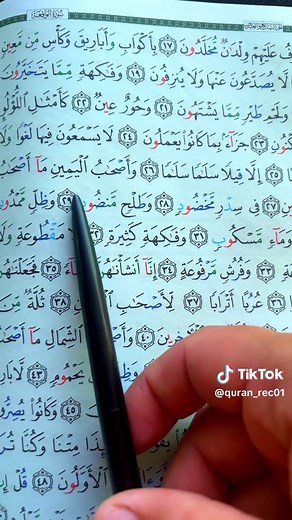 سُورَةُ الوَاقِعَةِ
عَلَيْهِمْ وِلْدَٰنٌ مُّخَلَّدُونَ ١٧ بِأَكْوَابٍ وَأَبَارِيقَ وَكَأْسٍ مِّن مَّعِينٍ
لَّا يُصَدَّعُونَ عَنْهَا وَلَا يُنزِفُونَ ١٩ وَفَٰكِهَةٍ مِّمَّا يَتَخَيَّرُونَ
وَلَحْمِ طَيْرٍ مِّمَّا يَشْتَهُونَ ٢١ وَحُورٌ عِينٌ ٢٢ كَأَمْثَٰلِ ٱللُّؤْلُؤِ
٢٣ جَزَآءًۢ بِمَا كَانُوا۟ يَعْمَلُونَ ٢٤ لَا يَسْمَعُونَ فِيهَا لَغْوًا وَلَا
٢٥ إِلَّا قِيلًا سَلَٰمًا سَلَٰمًا ٢٦ وَأَصْحَٰبُ ٱلْيَمِينِ مَآ أَصْحَٰبُ
٢٧ فِى سِدْرٍ مَّخْضُودٍ ٢٨ وَطَلْحٍ مَّنضُودٍ ٢٩ وَظِلٍّ مَّمْدُودٍ
وَمَآءٍ مَّسْكُوبٍ ٣١ وَفَٰكِهَةٍ كَثِيرَةٍ مَقْطُوعَةٍ وَلَا
٣٣ وَفُرُشٍ مَّرْفُوعَةٍ ٣٤ إِنَّآ أَنشَأْنَٰهُنَّ ٣٥ فَجَعَلْنَٰهُنَّ
٣٦ عُرُبًا أَتْرَابًا ٣٧ لِّأَصْحَٰبِ ٣٨ ثُلَّةٌ مِّنَ
٤٠ وَأَصْحَٰبُ ٱلشِّمَالِ مَآ
وَظِلٍّ يَحْمُومٍ ٤٣
٤٥ وَكَانُوا۟
مِتْنَا وَكُنَّا
ٱلْأَوَّلُونَ ٤٨ قُلْ
TikTok
@quran_rec01